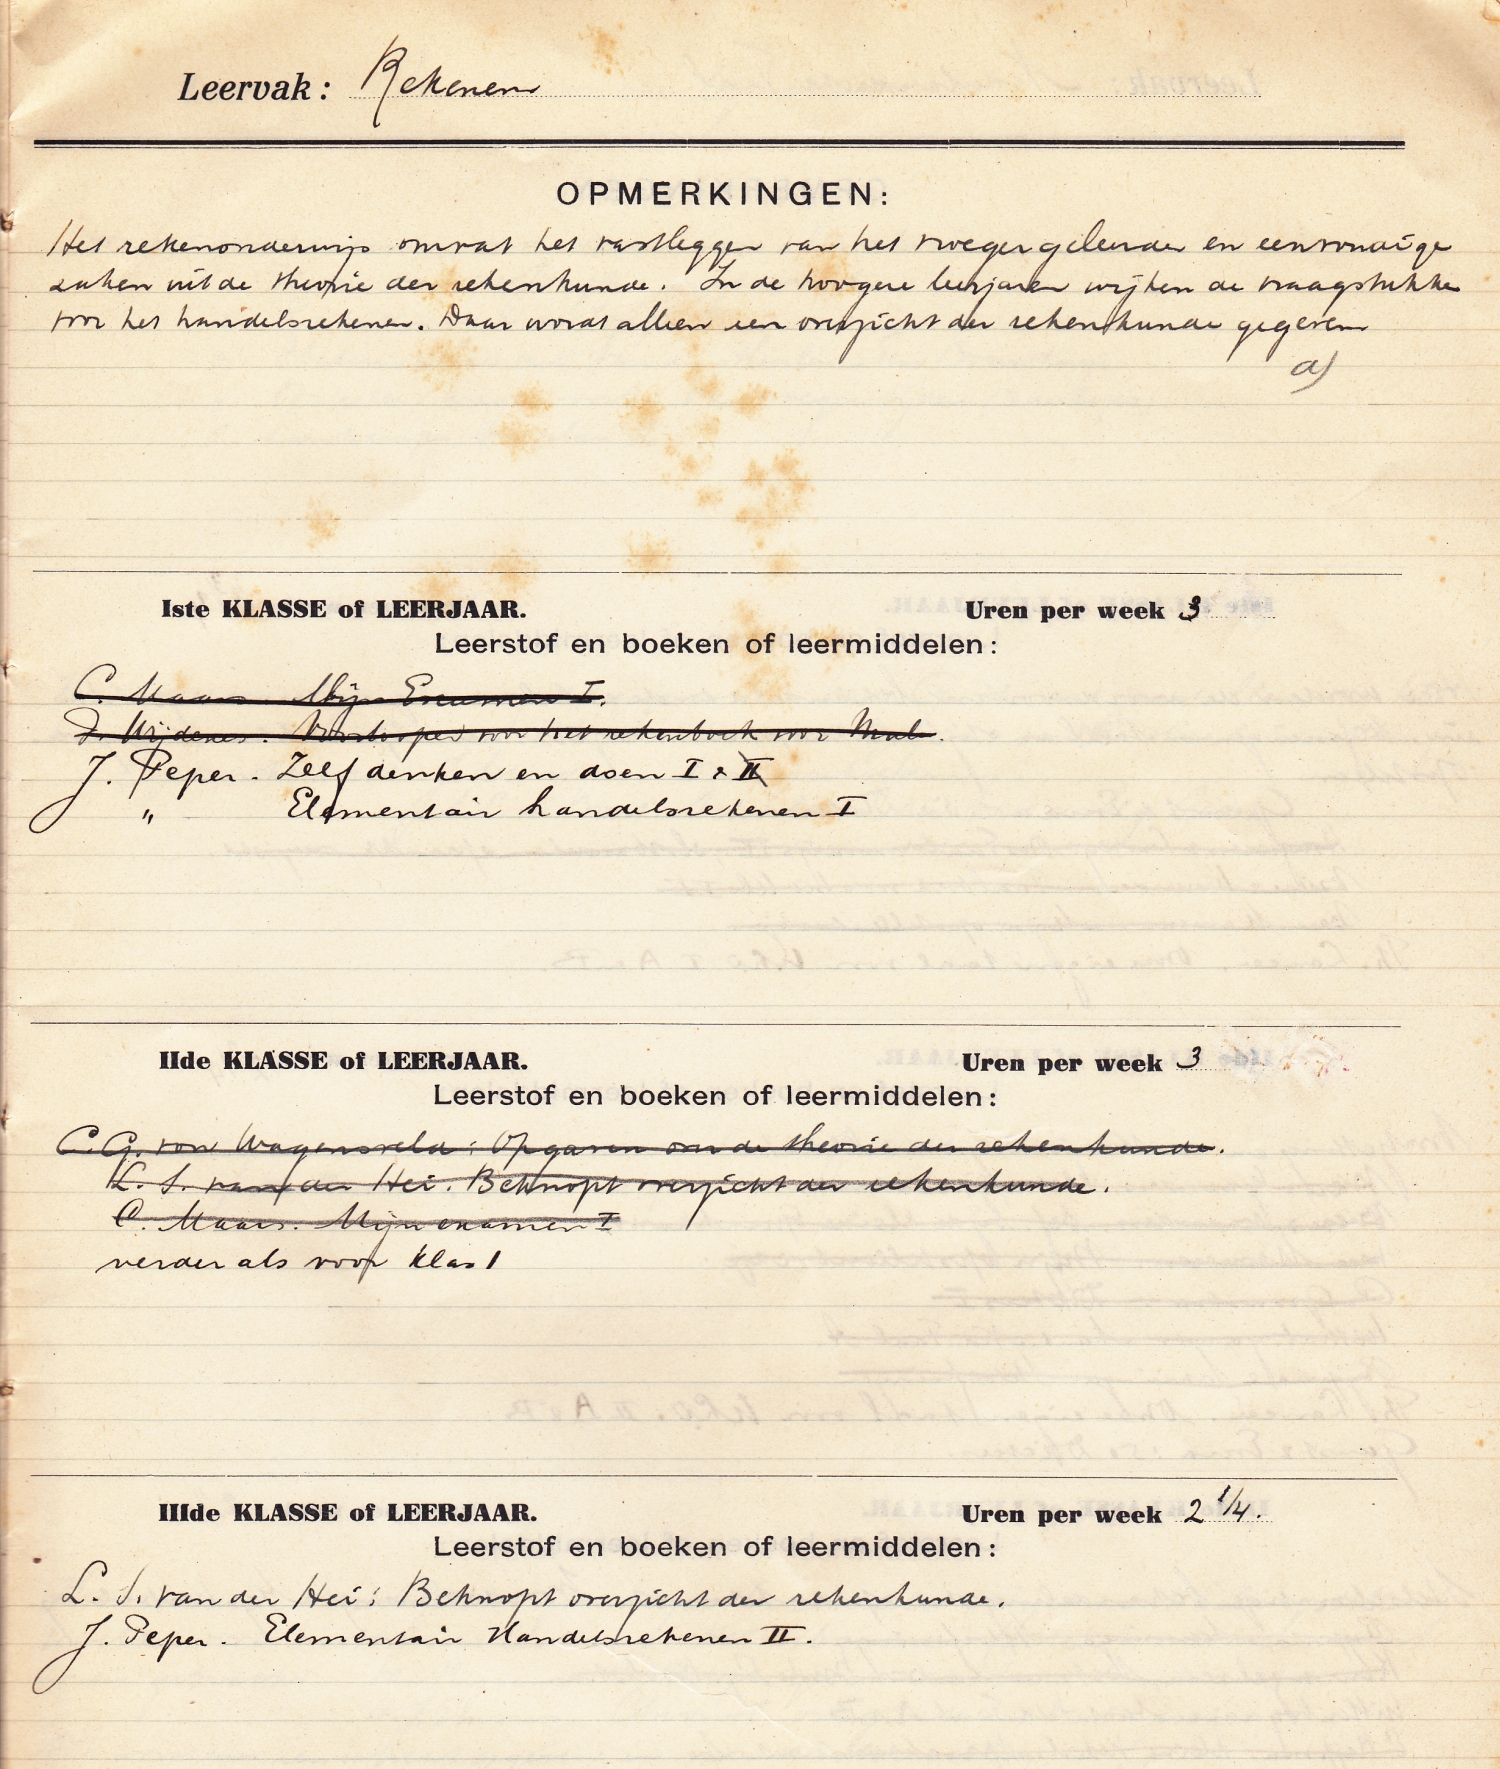 Leervak: Rekenen
OPMERKINGEN:
Het rekenonderwijs omvat het vastleggen van het vroeger geleerde en eenvoudige
zaken uit de theorie der rekenkunde. In de hoogere leerjaren wijken de vraagstukken
voor het handelsrekenen. Daar wordt alleen een overzicht der rekenkunde gegeven
a)
Iste KLASSE of LEERJAAR. Uren per week 3
Leerstof en boeken of leermiddelen:
C. Maars Mijn Examen I.
Wijdenes. Voorlooper voor het rekenboek voor Mulo.
J. Peper. Zelf denken en doen I & II
" Elementair handelsrekenen I
IIde KLASSE of LEERJAAR. Uren per week 3
Leerstof en boeken of leermiddelen:
C. G. van Wagensveld: Opgaven om de theorie der rekenkunde.
L. S. van der Hei. Beknopt overzicht der rekenkunde.
C. Maars. Mijn examen I
verder als voor klas 1
IIIde KLASSE of LEERJAAR. Uren per week 2 1/4.
Leerstof en boeken of leermiddelen:
L. S. van der Hei: Beknopt overzicht der rekenkunde.
J. Peper. Elementair Handelsrekenen II.